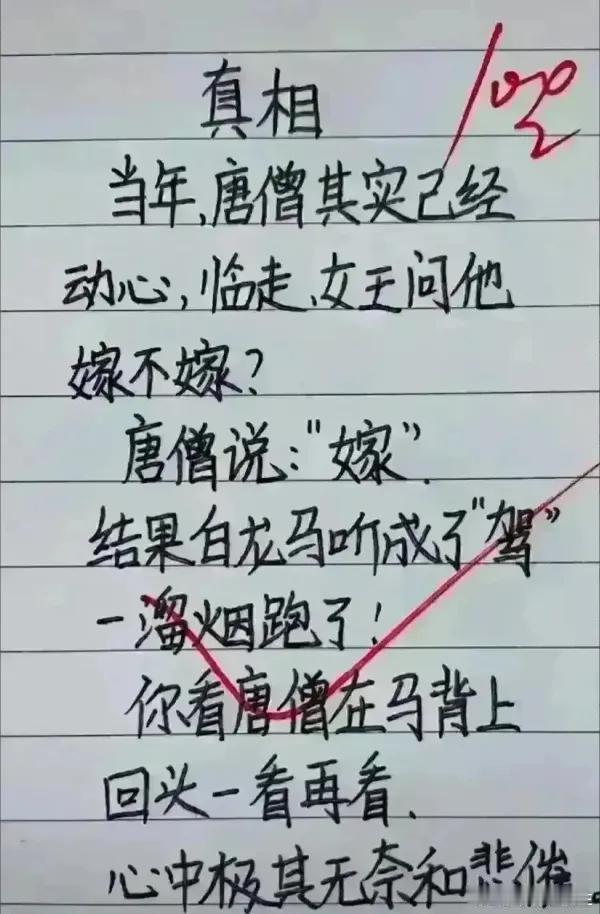 真相
100
当年,唐僧其实已经
动心,临走,女王问他
嫁不嫁?
唐僧说:“嫁”.
结果白龙马听成了“驾”
一溜烟跑了!
你看唐僧在马背上
回头一看再看.
心中极其无奈和悲催